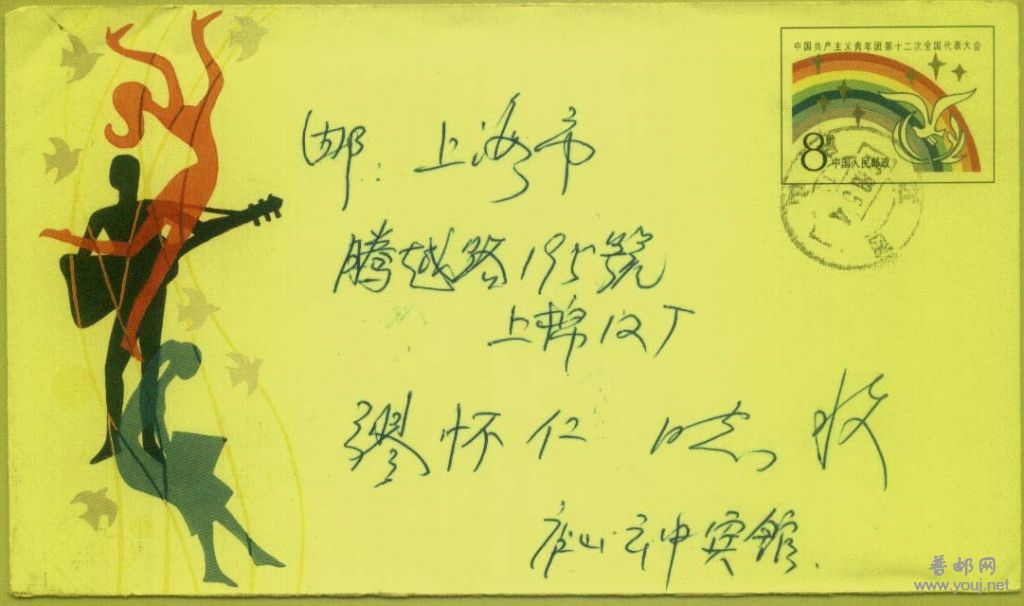 中国共产主义青年团第十二次全国代表大会
8分
中国人民邮政
邮:上海市
腾越路195號
上棉12厂
缪怀仁 同志 收
庐山云中宾館.
普邮网
www.youj.net